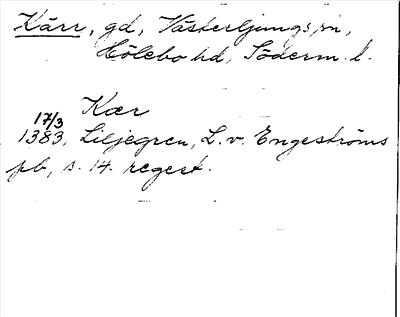 Kärr, gd, Västerljungs sn,
Hölebo hd, Söderm. l.
Kær
17/3
1383, Liljegren, L. v. Engeströms
pb, s. 14. regest.